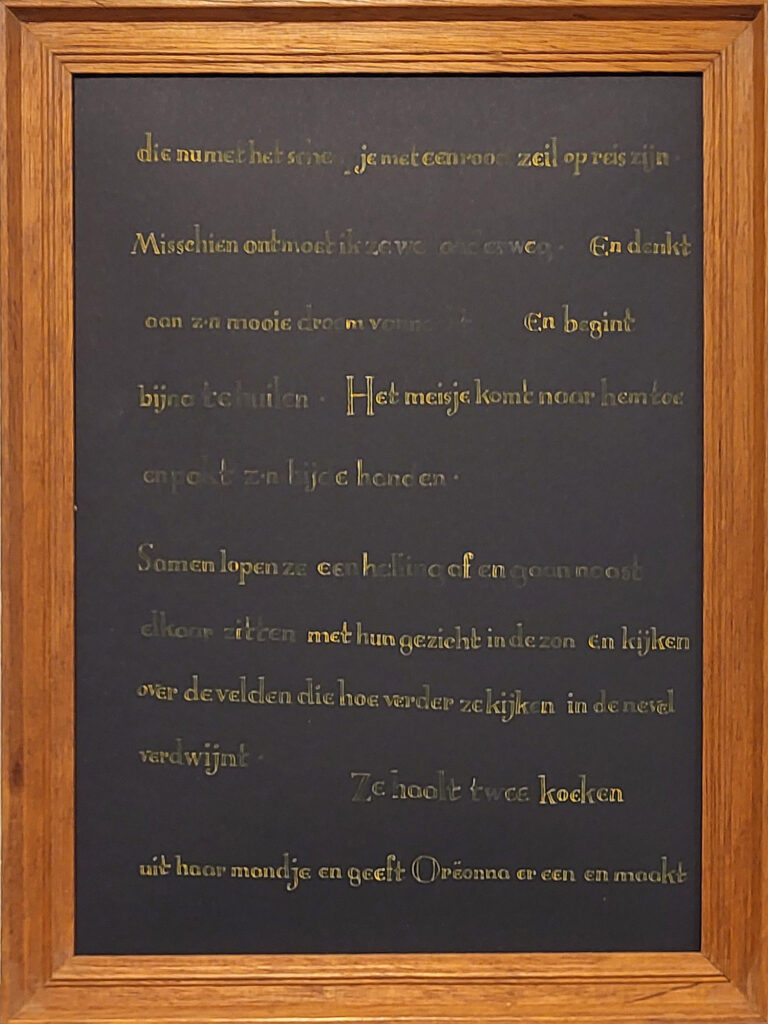 die nu met het scheepje met een rood zeil op reis zijn ·
Misschien ontmoet ik ze wel onderweg · En denkt
aan z·n mooie droom vannacht En begint
bijna te huilen · Het meisje komt naar hem toe
en pakt z·n bijde handen ·
Samen lopen ze een helling af en gaan naast
elkaar zitten met hun gezicht in de zon en kijken
over de velden die hoe verder ze kijken in de nevel
verdwijnt ·
Ze haalt twee koeken
uit haar mandje en geeft Oréonna er een en maakt